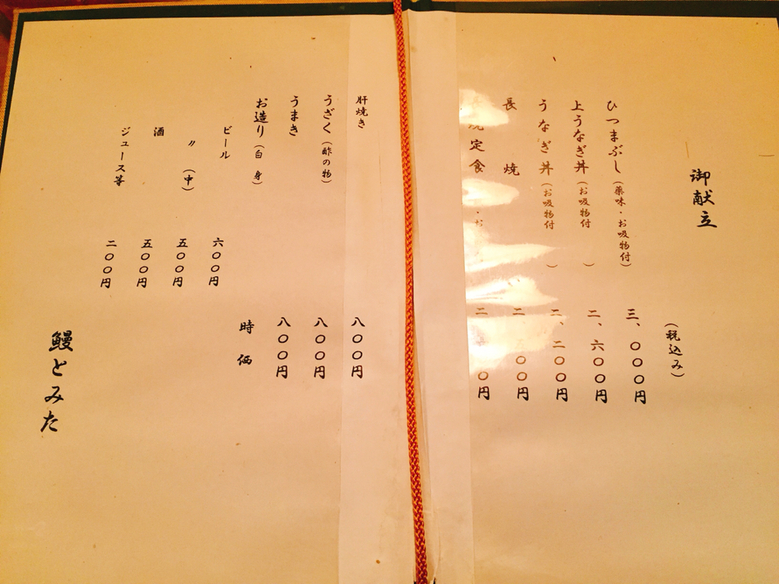 御献立
(税込み)
ひつまぶし(薬味・お吸物付) 三、〇〇〇円
上うなぎ丼(お吸物付) 二、六〇〇円
うなぎ丼(お吸物付) 二、二〇〇円
長焼 二 〇〇円
焼定食 ・お 二 〇円
肝焼き 八〇〇円
うざく(酢の物) 八〇〇円
うまき 八〇〇円
お造り(白身) 時価
ビール 六〇〇円
〃(中) 五〇〇円
酒 五〇〇円
ジュース等 二〇〇円
鰻とみた